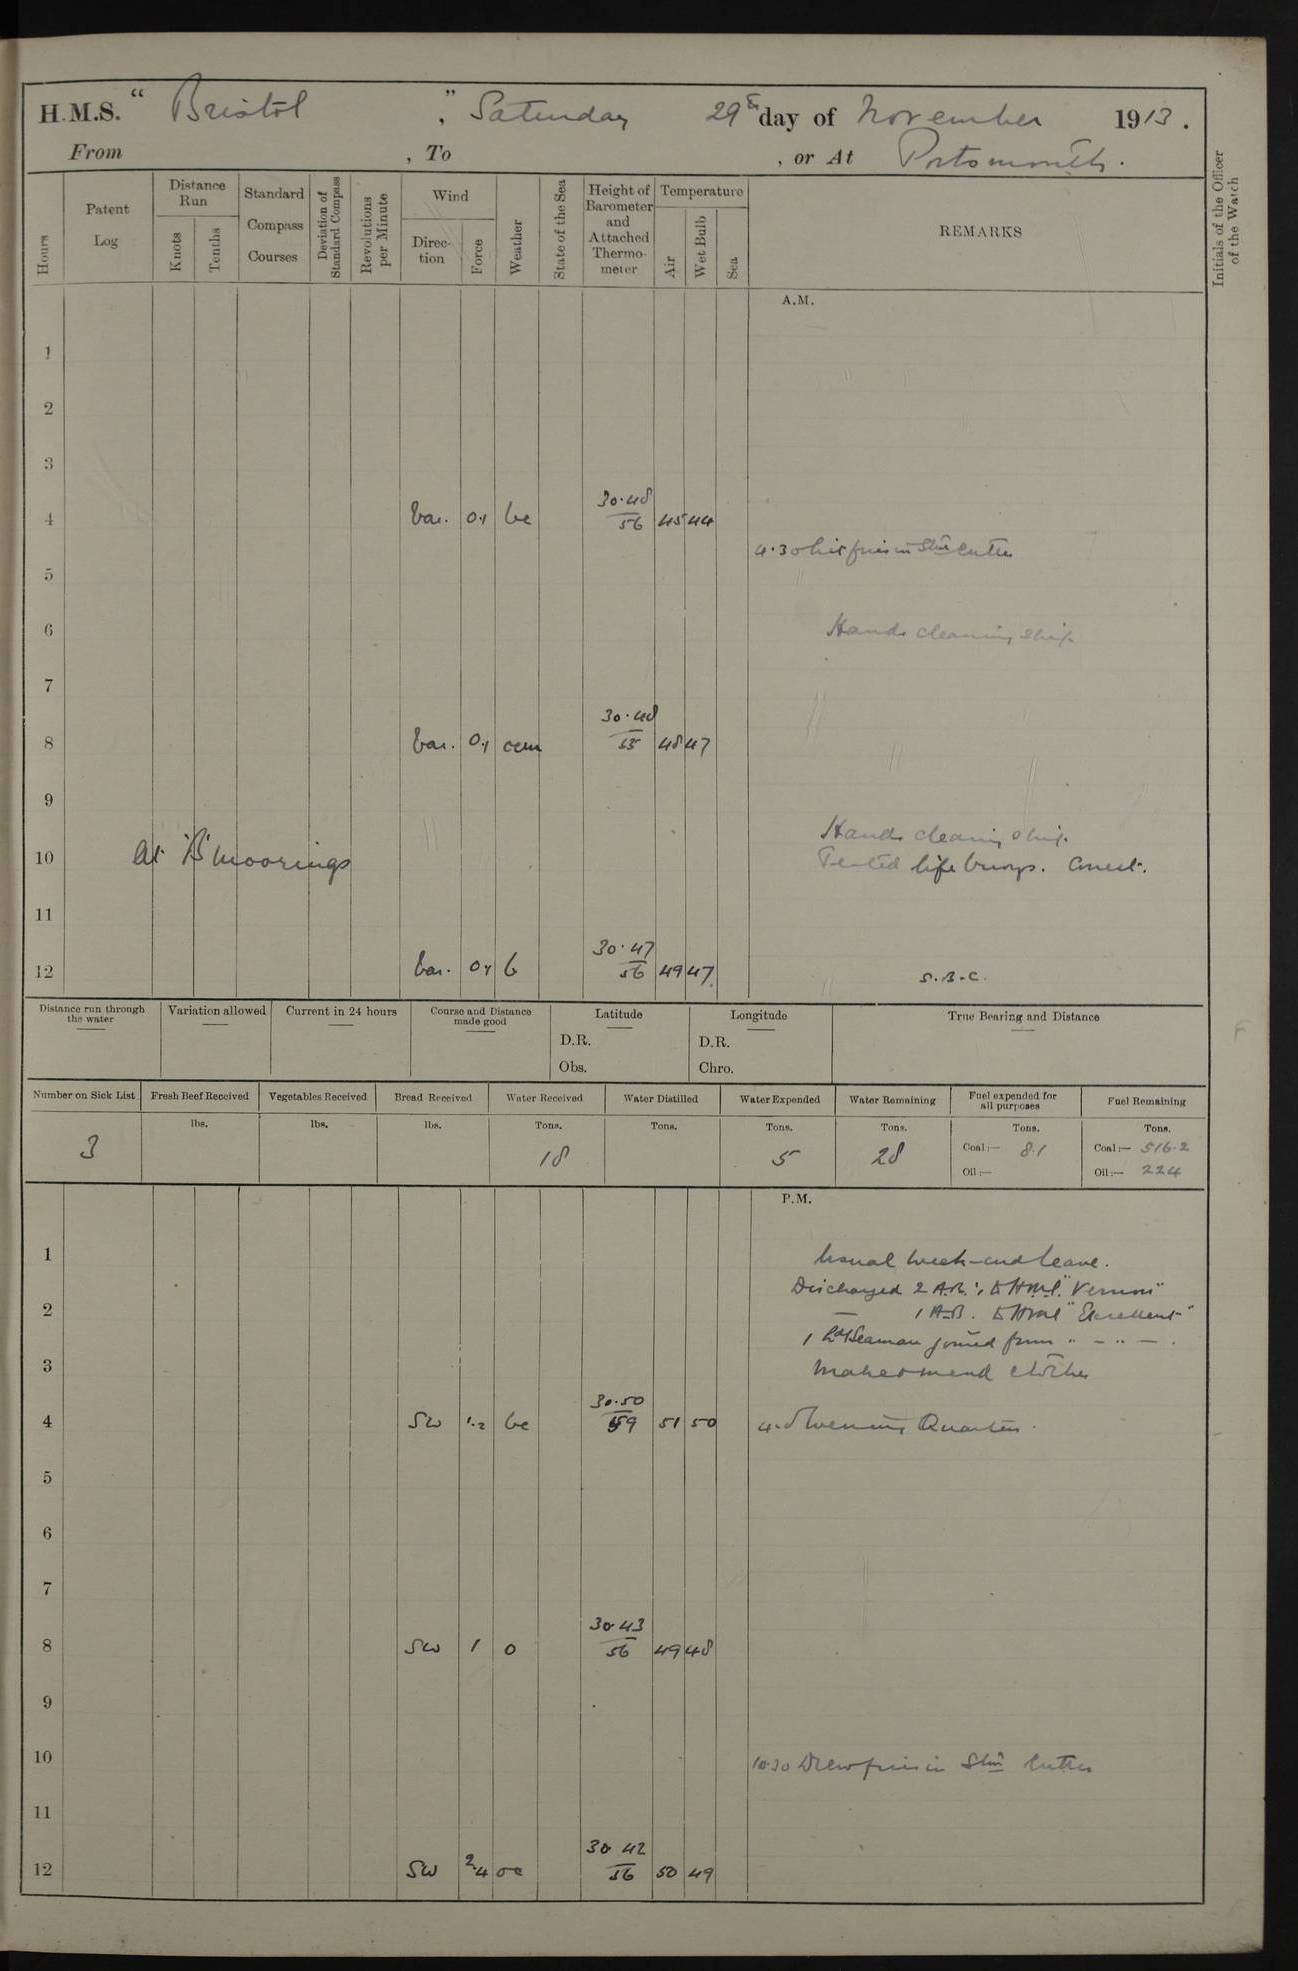 H.M.S. " Bristol ", Saturday 29th day of November 1913.
From , To , or At Portsmouth.
Hours
Patent Log
Distance Run
Knots
Tenths
Standard Compass Courses
Deviation of Standard Compass
Revolutions per Minute
Wind
Direction
Force
Weather
State of the Sea
Height of Barometer and Attached Thermometer
Temperature
Air
Wet Bulb
Sea
REMARKS
Initials of the Officer of the Watch
A.M.
1
2
3
4 Var. 0.1 bc 30.48 / 56 45 44
4.30 Lit fires in Stm Cutter
5
6 Hands cleaning ship
7
8 Var. 0.1 ocm 30.48 / 55 48 47
9
Hands cleaning ship.
10 At 'B' moorings Tested life buoys. Correct.
11
12 Var. 0.1 b 30.47 / 56 49 47 S.B.C.
Distance run through the water
Variation allowed
Current in 24 hours
Course and Distance made good
Latitude
D.R.
Obs.
Longitude
D.R.
Chro.
True Bearing and Distance
Number on Sick List
Fresh Beef Received
Vegetables Received
Bread Received
Water Received
Water Distilled
Water Expended
Water Remaining
Fuel expended for all purposes
Fuel Remaining
lbs. lbs. lbs. Tons. Tons. Tons. Tons. Tons. Tons.
3 18 5 28 Coal:— 8.1 Coal:— 516.2
Oil:— Oil:— 224
P.M.
1 Usual week-end leave.
Discharged 2 A.B.'s to H.M.S. "Vernon"
2 — 1 A.B. to HMS "Excellent"
1 Ldg Seaman joined from " — " — .
3 Make & mend clothes
4 SW 1.2 bc 30.50 / 59 51 50 4.0 Evening Quarters.
5
6
7
8 SW 1 o 30.43 / 56 49 48
9
10 10.30 Drew fires in Stm Cutter
11
12 SW 2.4 oc 30.42 / 56 50 49